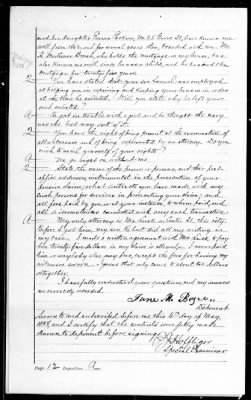 and her daughter Emma Parker, No. 25 Grove St, have known me
well from 1862, and for several years they boarded with me. Mr.
G. Brown, who holds the mortgage on my house, has
also known me well since he was a child, and he has had the
mortgage for twenty five years.
Q You have stated that your son Samuel was employed
at helping you in repairing and keeping your house in order
at the time he enlisted. Will you state why he left your
and enlisted?
A He got in trouble with a girl and he thought the navy
was the best way out of it.
Q You have the right of being present at the examination of
all witnesses and of being represented by an attorney. Do you
wish to avail yourself of your rights?
A No, go ahead without me.
Q State the name of the person or persons, and their post-
office address, instrumental in the prosecution of your
pension claim; what contracts you have made with any
such persons for services in prosecuting your claim; and
all fees paid by you at your instance, to whom paid, and
all circumstances connected with any such transaction.
A My only attorney is Mr. this city.
Before I got him, my son Robert did all my writing in
my case. I made a written agreement with Mr. to pay
him twenty five dollars in my case, if allowed. I never paid
him or anybody else any fee, except the fee for having my
witnesses sworn. I guess that only came to about two dollars
altogether.
I have fully understood your questions, and my answers
are correctly recorded.
Jane M.
Deponent
Sworn to and subscribed before me this 16th day of May,
1888, and I certify that the contents were fully made
known to deponent before signing.
Special Examiner
Page 12 Deposition A